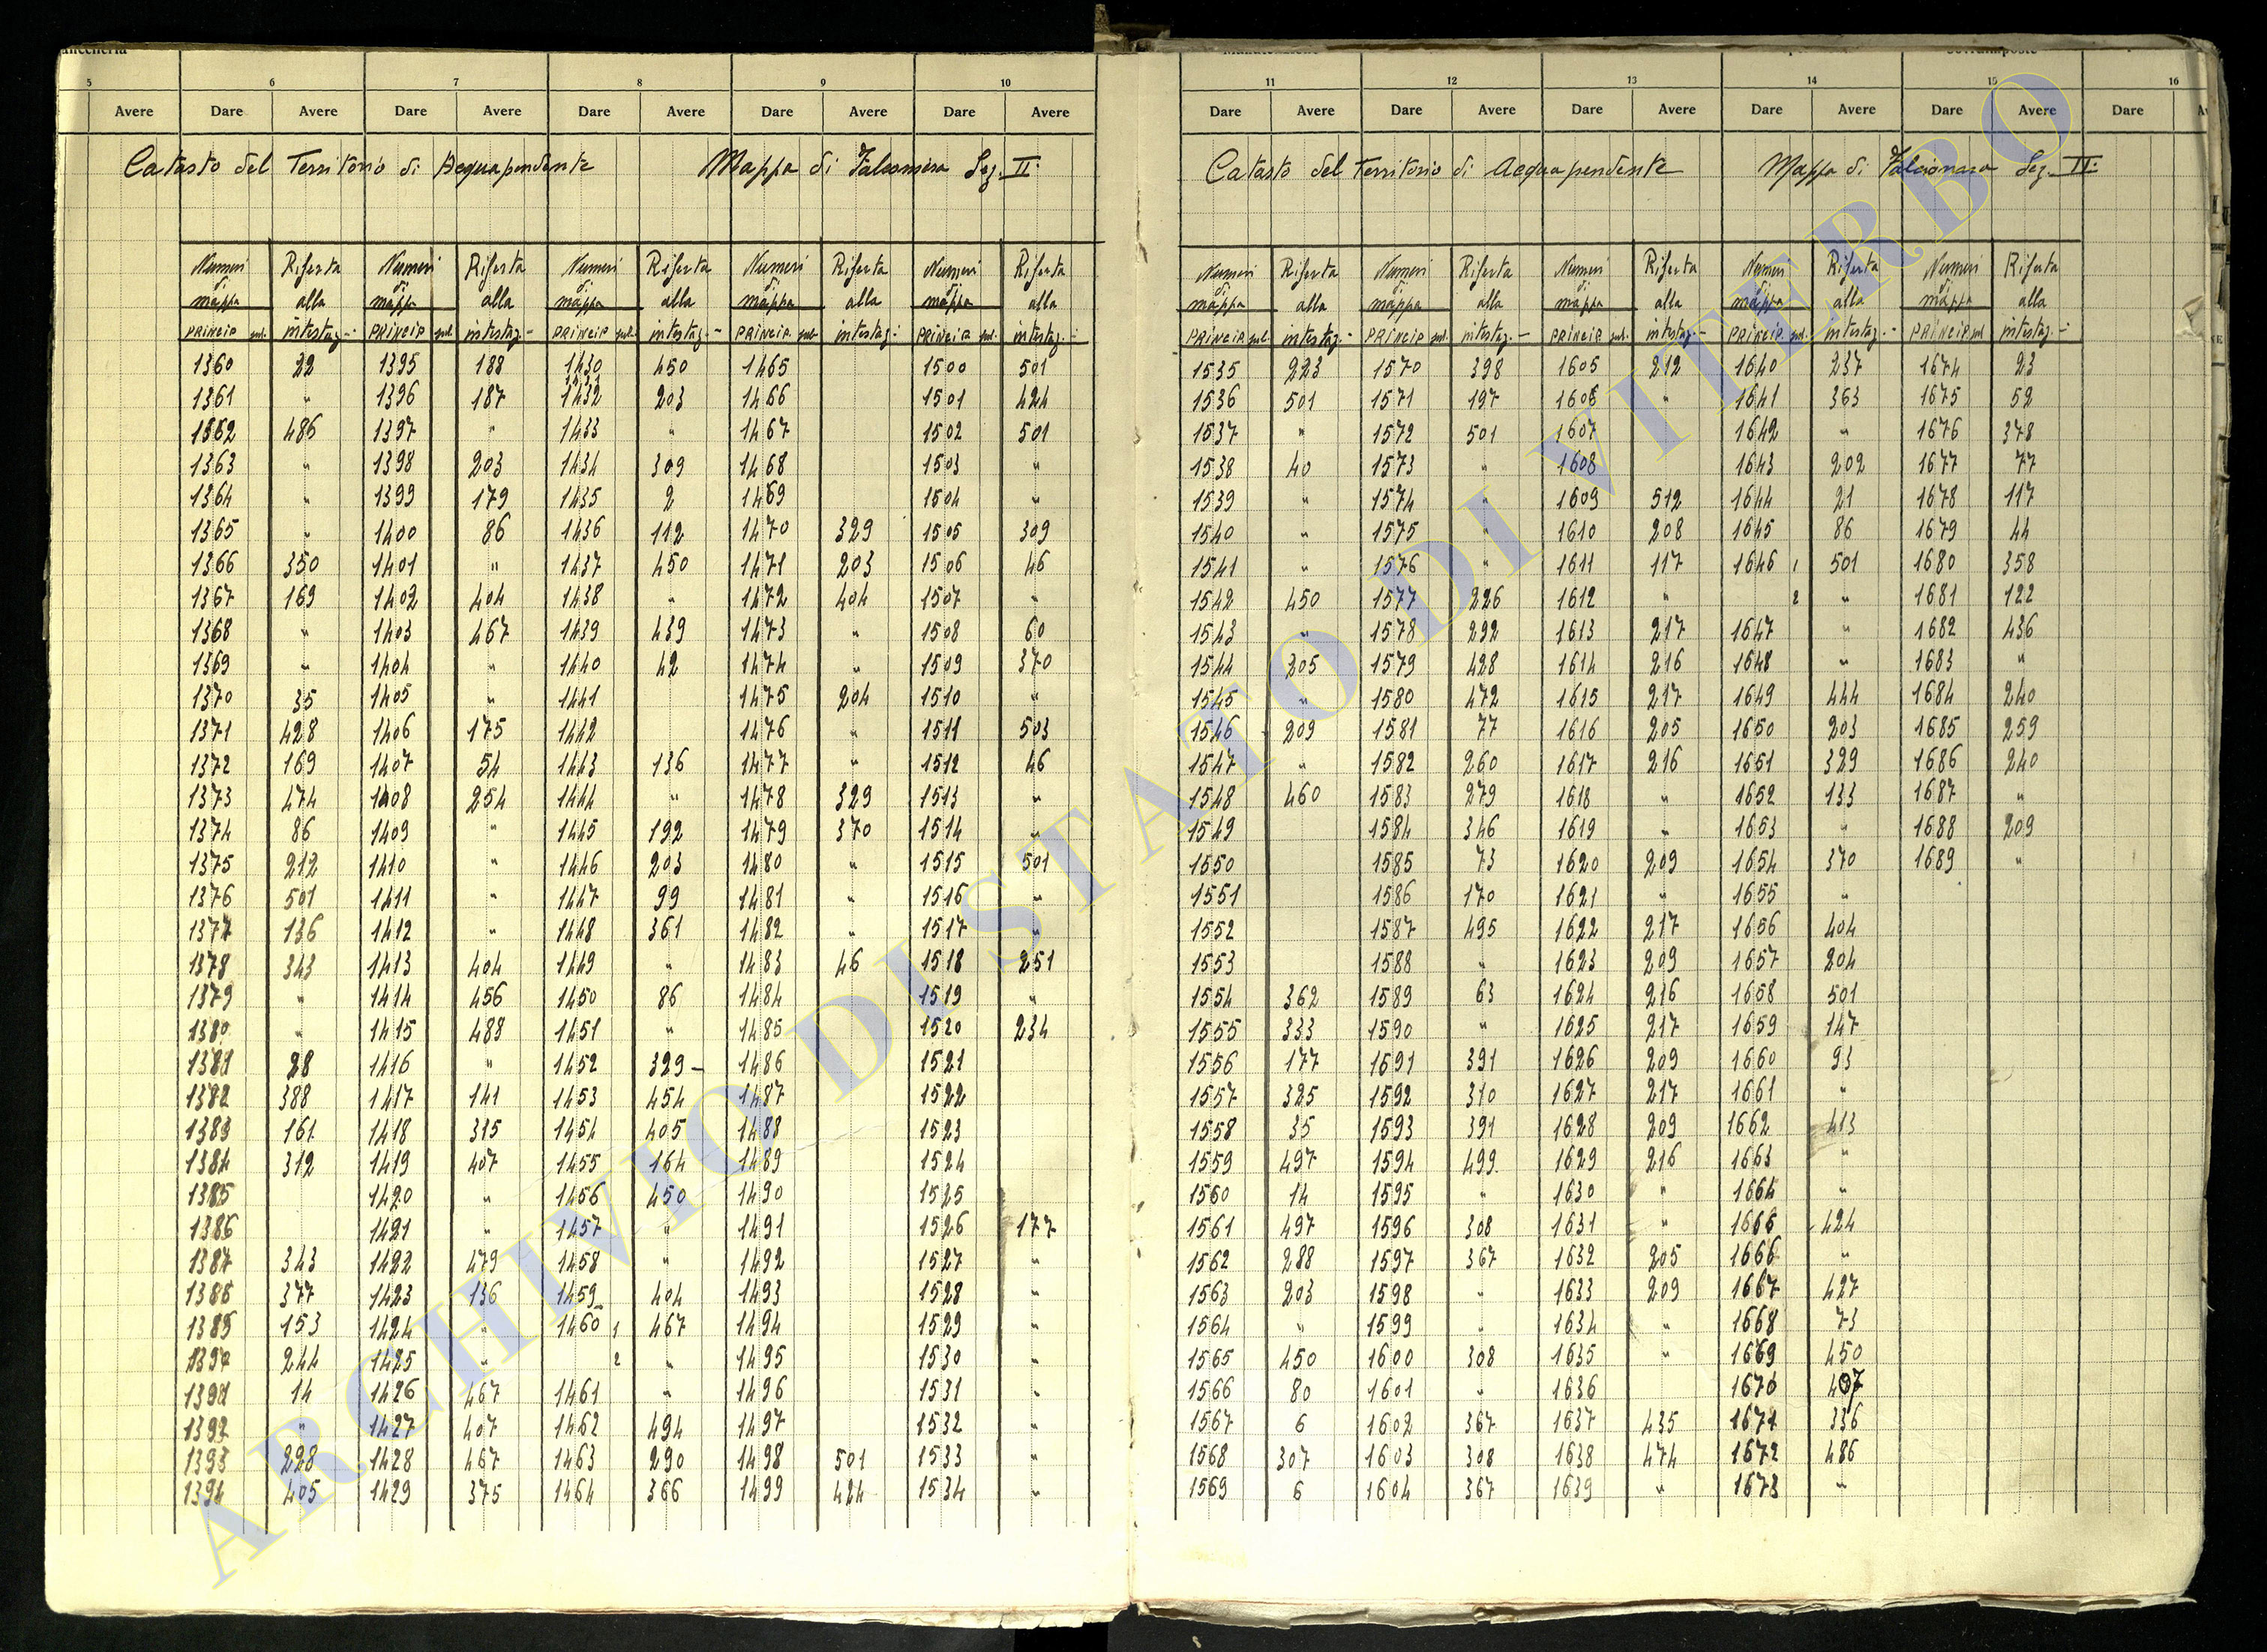 5 6 7 8 9 10
Avere Dare Avere Dare Avere Dare Avere Dare Avere Dare Avere
Catasto del Territorio di Acquapendente Mappa di Falconiera Sez. II:
Numeri di mappa Riferta alla intestaz. Numeri di mappa Riferta alla intestaz. Numeri di mappa Riferta alla intestaz. Numeri di mappa Riferta alla intestaz. Numeri di mappa Riferta alla intestaz.
PRINCIP. sub. PRINCIP. sub. PRINCIP. sub. PRINCIP. sub. PRINCIP. sub.
1360 22 1395 188 1430 450 1465 1500 501
1361 " 1396 187 1432 203 1466 1501 424
1362 486 1397 " 1433 " 1467 1502 501
1363 " 1398 203 1434 309 1468 1503 "
1364 " 1399 179 1435 2 1469 1504 "
1365 " 1400 86 1436 112 1470 329 1505 309
1366 350 1401 " 1437 450 1471 203 1506 46
1367 169 1402 404 1438 " 1472 404 1507 "
1368 " 1403 467 1439 439 1473 " 1508 60
1369 " 1404 " 1440 42 1474 " 1509 370
1370 35 1405 " 1441 1475 204 1510 "
1371 428 1406 175 1442 1476 " 1511 503
1372 169 1407 54 1443 136 1477 " 1512 46
1373 474 1408 254 1444 " 1478 329 1513 "
1374 86 1409 " 1445 192 1479 370 1514 "
1375 212 1410 " 1446 203 1480 " 1515 501
1376 501 1411 " 1447 99 1481 " 1516 "
1377 136 1412 " 1448 361 1482 " 1517 "
1378 343 1413 404 1449 " 1483 46 1518 251
1379 " 1414 456 1450 86 1484 1519 "
1380 " 1415 488 1451 " 1485 1520 234
1381 28 1416 " 1452 329 – 1486 1521
1382 388 1417 141 1453 454 1487 1522
1383 161 1418 315 1454 405 1488 1523
1384 312 1419 407 1455 164 1489 1524
1385 1420 " 1456 450 1490 1525
1386 1421 " 1457 " 1491 1526 177
1387 343 1422 479 1458 " 1492 1527 "
1388 377 1423 136 1459 404 1493 1528 "
1389 153 1424 " 1460 1 467 1494 1529 "
1390 244 1425 " 2 " 1495 1530 "
1391 14 1426 467 1461 " 1496 1531 "
1392 " 1427 407 1462 494 1497 1532 "
1393 228 1428 467 1463 290 1498 501 1533 "
1394 405 1429 375 1464 366 1499 424 1534 "
11 12 13 14 15 16
Dare Avere Dare Avere Dare Avere Dare Avere Dare Avere Dare
Catasto del Territorio di Acquapendente Mappa di Falconara Sez. II:
Numeri di mappa Riferta alla intestaz. Numeri di mappa Riferta alla intestaz. Numeri di mappa Riferta alla intestaz. Numeri di mappa Riferta alla intestaz. Numeri di mappa Riferta alla intestaz.
PRINCIP. sub. PRINCIP. sub. PRINCIP. sub. PRINCIP. sub. PRINCIP. sub.
1535 223 1570 398 1605 212 1640 237 1674 23
1536 501 1571 197 1606 " 1641 363 1675 52
1537 " 1572 501 1607 1642 " 1676 378
1538 40 1573 " 1608 1643 202 1677 77
1539 " 1574 " 1609 512 1644 21 1678 117
1540 " 1575 " 1610 208 1645 86 1679 44
1541 " 1576 " 1611 117 1646 1 501 1680 358
1542 450 1577 226 1612 " 2 " 1681 122
1543 " 1578 292 1613 217 1647 " 1682 436
1544 305 1579 428 1614 216 1648 " 1683 "
1545 " 1580 472 1615 217 1649 444 1684 240
1546 209 1581 77 1616 205 1650 203 1685 259
1547 " 1582 260 1617 216 1651 329 1686 240
1548 460 1583 279 1618 " 1652 133 1687 "
1549 1584 346 1619 " 1653 " 1688 209
1550 1585 73 1620 209 1654 370 1689 "
1551 1586 170 1621 " 1655 "
1552 1587 495 1622 217 1656 404
1553 1588 " 1623 209 1657 204
1554 362 1589 63 1624 216 1658 501
1555 333 1590 " 1625 217 1659 147
1556 177 1591 391 1626 209 1660 93
1557 325 1592 310 1627 217 1661 "
1558 35 1593 391 1628 209 1662 413
1559 497 1594 499 1629 216 1663 "
1560 14 1595 " 1630 " 1664 "
1561 497 1596 308 1631 " 1665 424
1562 288 1597 367 1632 205 1666 "
1563 203 1598 " 1633 209 1667 427
1564 " 1599 " 1634 " 1668 73
1565 450 1600 308 1635 " 1669 450
1566 80 1601 " 1636 1670 407
1567 6 1602 367 1637 435 1671 336
1568 307 1603 308 1638 474 1672 486
1569 6 1604 367 1639 " 1673 "
ARCHIVIO DI STATO DI VITERBO